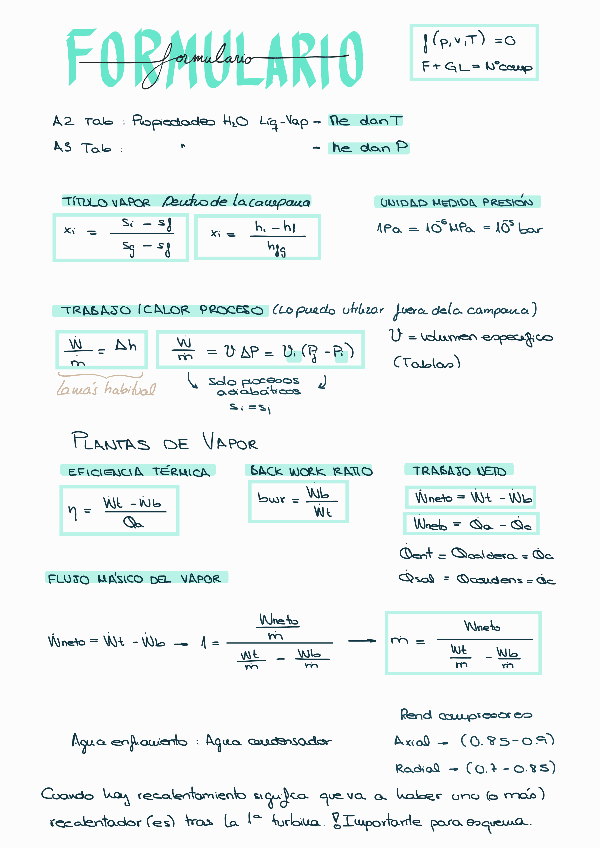 FORMULARIO
formulario
f(p,v,T) = 0
F + GL = N°comp
A2 Tab : Propiedades H2O Líq-Vap - Me dan T
A3 Tab : " - Me dan P
TÍTULO VAPOR Dentro de la campana
xi = (si - sf) / (sg - sf)
xi = (hi - hf) / hfg
UNIDAD MEDIDA PRESIÓN
1Pa = 10^-6 MPa = 10^-5 bar
TRABAJO / CALOR PROCESO (Lo puedo utilizar fuera de la campana)
Ẇ/ṁ = Δh
Ẇ/ṁ = v ΔP = vi (Pf - Pi)
v = volumen específico
(Tablas)
la más habitual
solo procesos
adiabáticos
si = sf
PLANTAS DE VAPOR
EFICIENCIA TÉRMICA
η = (Ẇt - Ẇb) / Q̇a
BACK WORK RATIO
bwr = Ẇb / Ẇt
TRABAJO NETO
Ẇneto = Ẇt - Ẇb
Ẇneto = Q̇a - Q̇c
Q̇ent = Q̇caldera = Q̇a
Q̇sal = Q̇condens = Q̇c
FLUJO MÁSICO DEL VAPOR
Ẇneto = Ẇt - Ẇb → 1 = (Ẇneto/ṁ) / (Ẇt/ṁ - Ẇb/ṁ) → ṁ = Ẇneto / (Ẇt/ṁ - Ẇb/ṁ)
Rend compresores
Agua enfriamiento : Agua condensador
Axial → (0.85-0.9)
Radial → (0.7-0.85)
Cuando hay recalentamiento significa que va a haber uno (o más)
recalentador(es) tras la 1ª turbina. ! Importante para esquema.